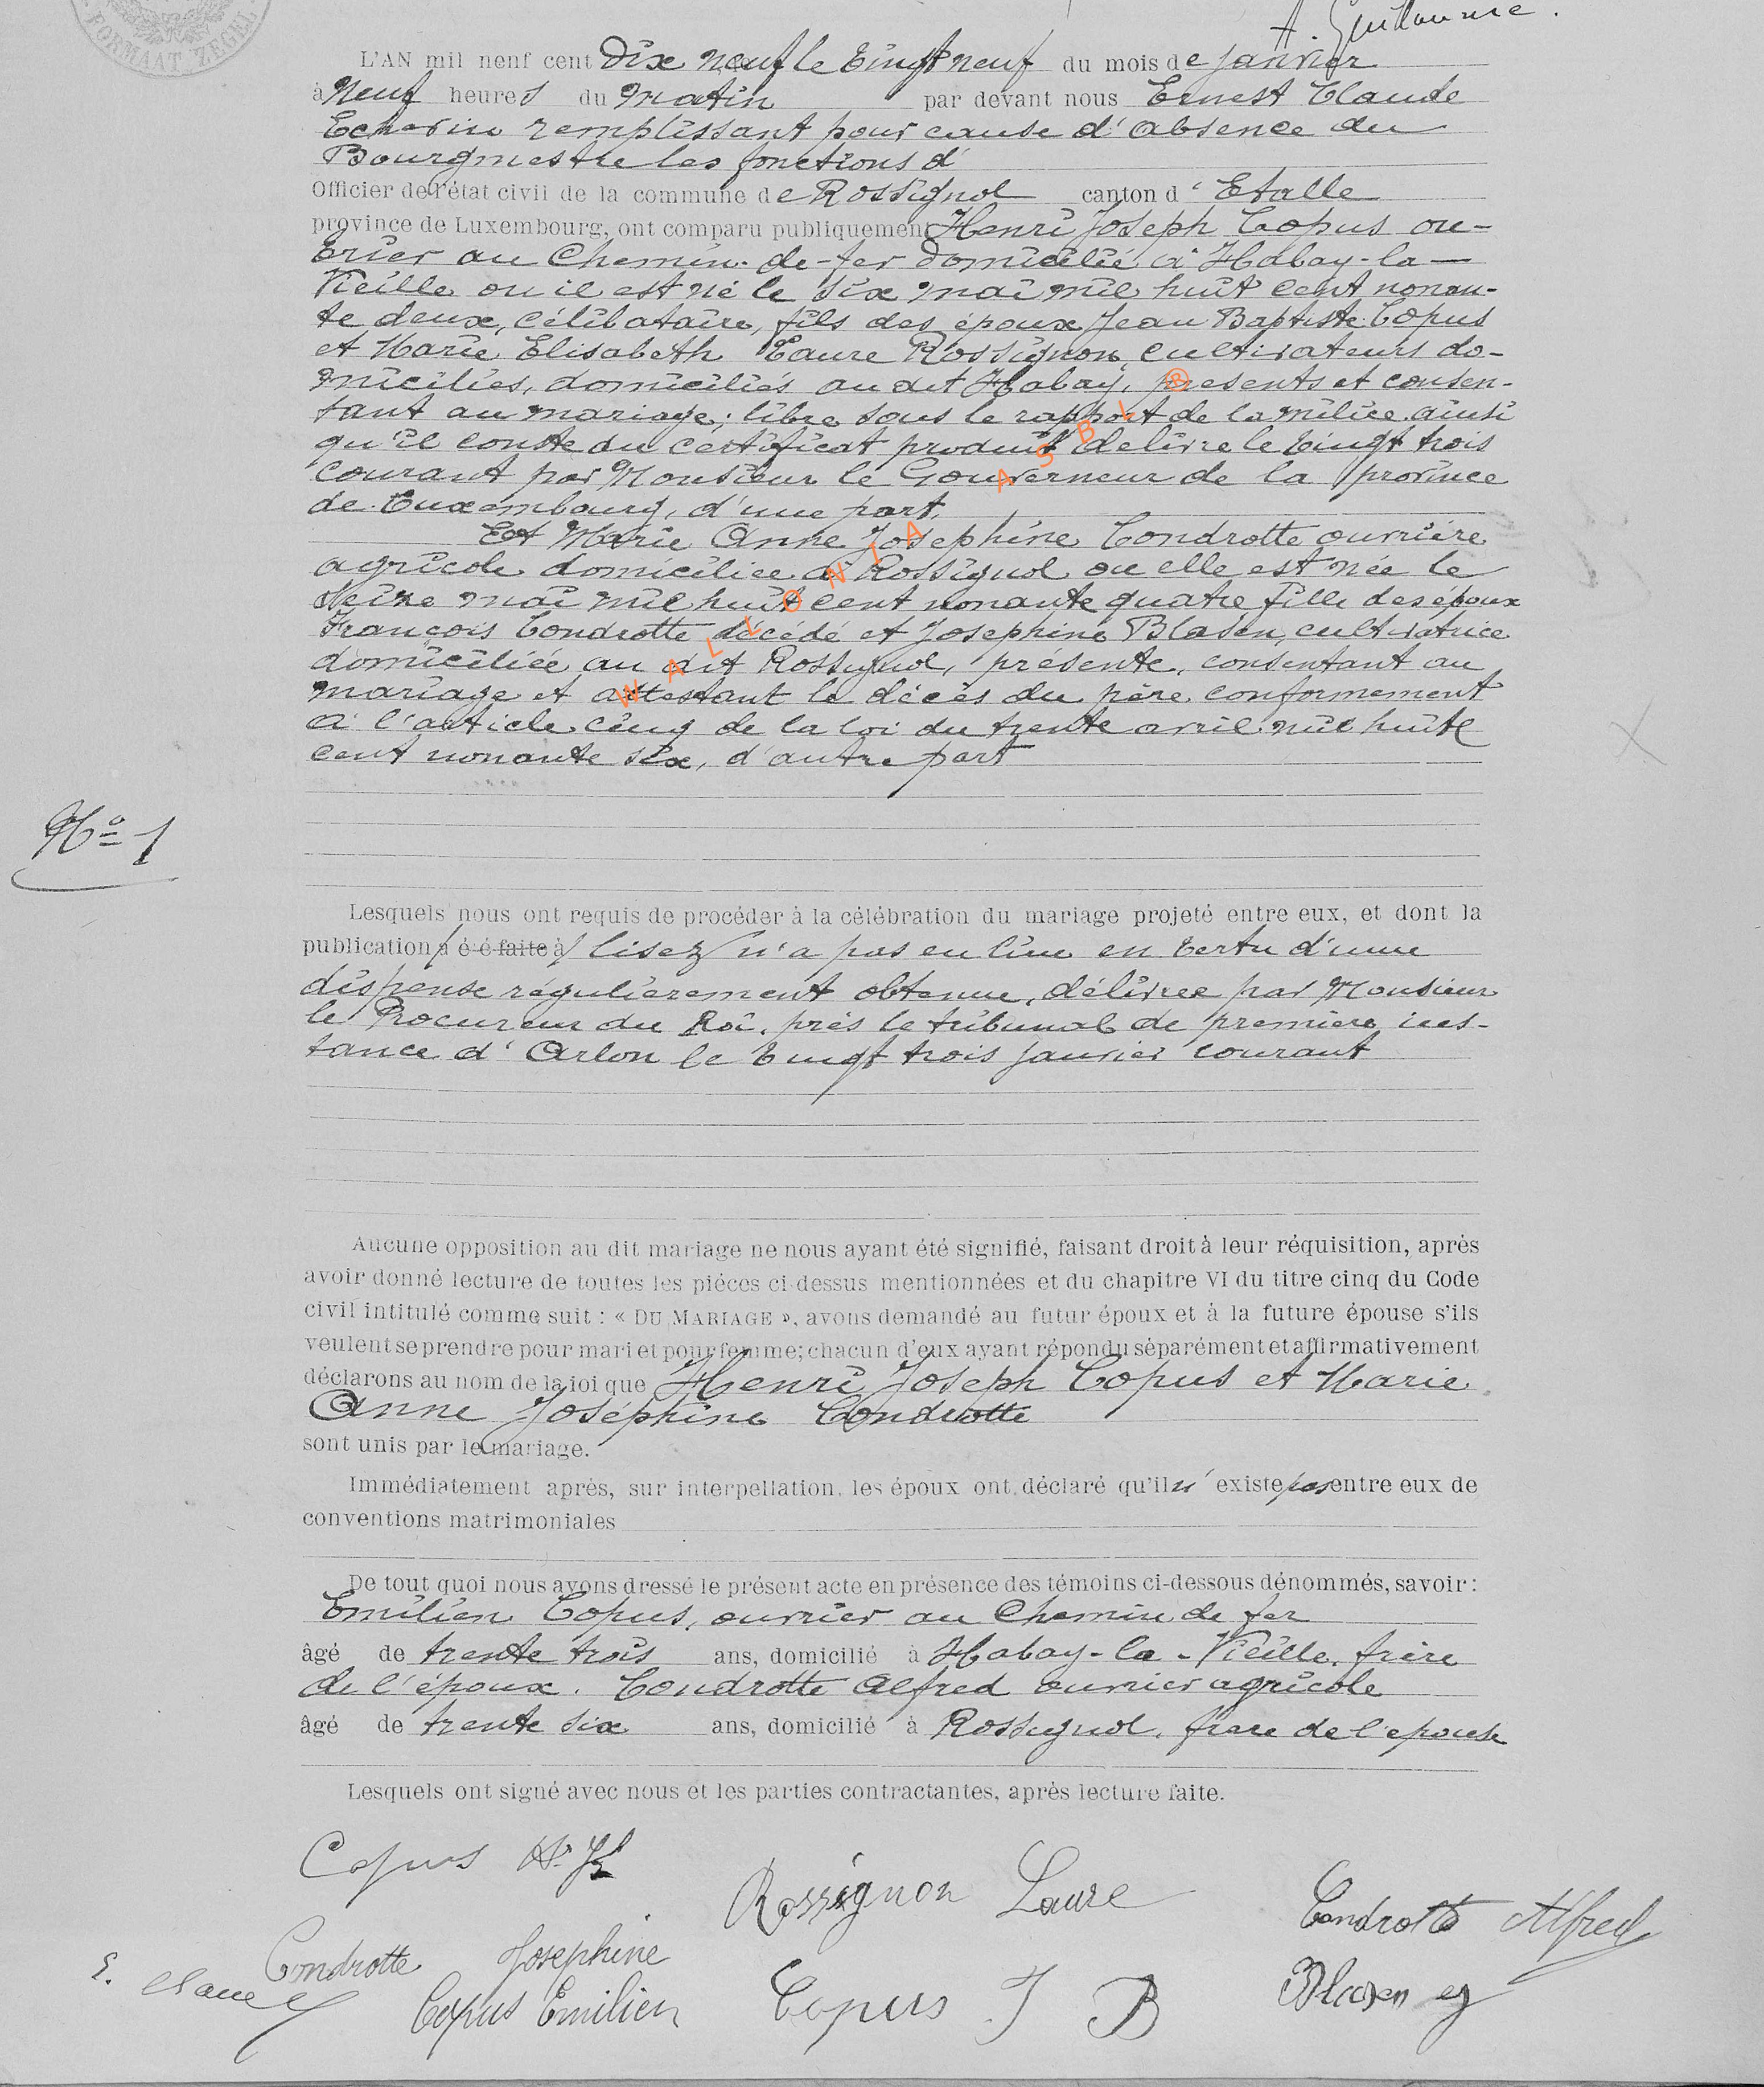 FORMAAT ZEGEL
A. Guillaume.
L'AN mil neuf cent Dix neuf le vingt neuf du mois de janvier
à Neuf heures du matin par devant nous Ernest Claude
Echevin remplissant pour cause d'absence du
Bourgmestre les fonctions d'
Officier de l'état civil de la commune de Rossignol canton d'Etalle
province de Luxembourg, ont comparu publiquement Henri Joseph Copus ou-
vrier au Chemin-de-fer domicilié à Habay-la-
Vieille ou il est né le six mai mil huit cent nonan-
te deux, célibataire, fils des époux Jean Baptiste Copus
et Marie Elisabeth Laure Rossignon, cultivateurs do-
miciliés, domiciliés au dit Habay, présents et consen-
tant au mariage; libre sous le rapport de la milice ainsi
qu'il conste du certificat produit délivré le vingt trois
courant par Monsieur le Gouverneur de la province
de Luxembourg, d'une part.
Et Marie Anne Josephine Condrotte ouvrière
agricole domiciliée à Rossignol ou elle est née le
seize mai mil huit cent nonante quatre fille des époux
François Condrotte décédé et Josephine Blasen, cultivatrice
domiciliée au dit Rossignol, présente, consentant au
mariage et attestant le décès du père conformement
à l'article cinq de la loi du trente avril mil huit
cent nonante six, d'autre part
WALLONIA ASBL ®
No 1
Lesquels nous ont requis de procéder à la célébration du mariage projeté entre eux, et dont la
publication / a été faite à / lisez / n'a pas eu lieu en vertu d'une
dispense régulièrement obtenue, délivrée par Monsieur
le Procureur du Roi, près le tribunal de première ins-
tance d'Arlon le vingt trois janvier courant
Aucune opposition au dit mariage ne nous ayant été signifié, faisant droit à leur réquisition, après
avoir donné lecture de toutes les pièces ci-dessus mentionnées et du chapitre VI du titre cinq du Code
civil intitulé comme suit : « DU MARIAGE », avons demandé au futur époux et à la future épouse s'ils
veulent se prendre pour mari et pour femme; chacun d'eux ayant répondu séparément et affirmativement
déclarons au nom de la loi que Henri Joseph Copus et Marie
Anne Joséphine Condrotte
sont unis par le mariage.
Immédiatement après, sur interpellation, les époux ont déclaré qu'il n'existe pas entre eux de
conventions matrimoniales
De tout quoi nous avons dressé le présent acte en présence des témoins ci-dessous dénommés, savoir :
Emilien Copus, ouvrier au Chemin de fer
âgé de trente trois ans, domicilié à Habay-la-Vieille, frère
de l'époux. Condrotte Alfred ouvrier agricole
âgé de trente six ans, domicilié à Rossignol, frère de l'épouse
Lesquels ont signé avec nous et les parties contractantes, après lecture faite.
Copus H. J.
Rossignon Laure
Condrotte Alfred
Condrotte Josephine
E. Claude
Copus Emilien
Copus J B
Blasen